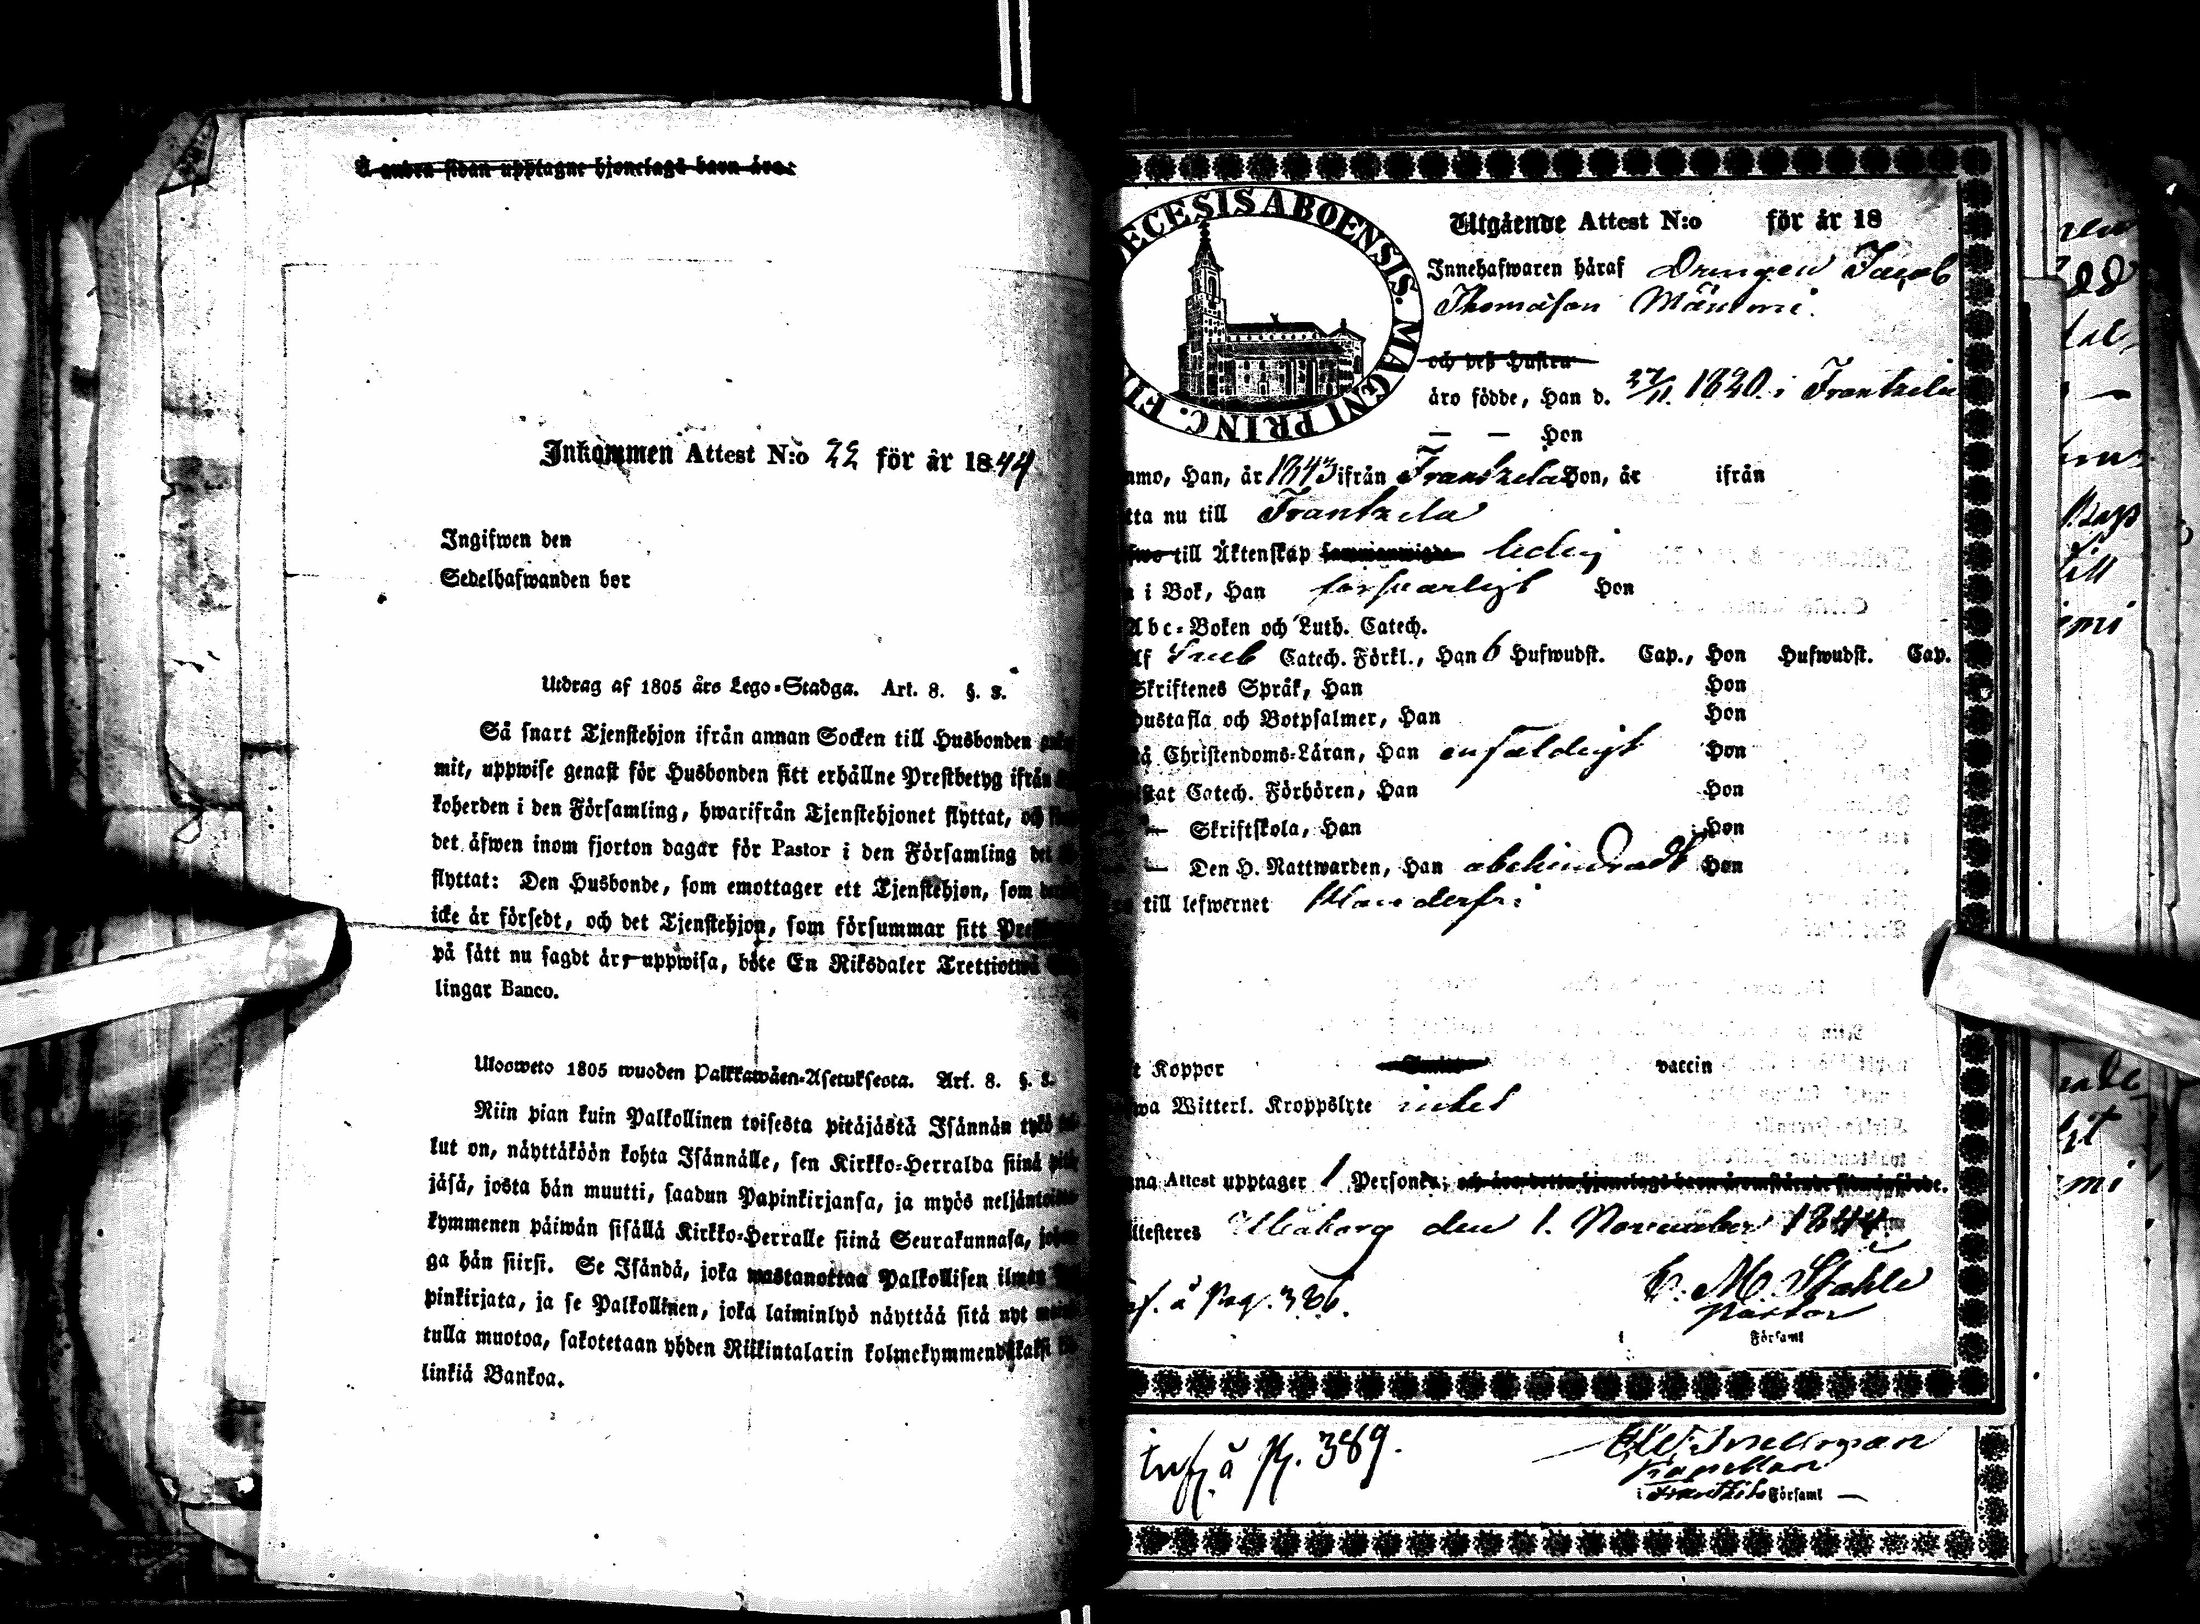 Å andra sidan upptagne hjonelags barn äro:
Inkommen Attest N:o 22 för år 1844
Ingifwen den
Sedelhafwanden bor
Utdrag af 1805 års Lego-Stadga. Art. 8. §. 3.
Så snart Tjenstehjon ifrån annan Socken till Husbonden
mit, uppwise genast för Husbonden sitt erhållne Prestbetyg ifrån
koherden i den Församling, hwarifrån Tjenstehjonet flyttat, och
det äfwen inom fjorton dagar för Pastor i den Församling det
flyttat: Den Husbonde, som emottager ett Tjenstehjon, som
icke är försedt, och det Tjenstehjon, som försummar sitt
på sätt nu sagdt är, uppwisa, böte En Riksdaler Trettiotwå
lingar Banco.
Ulosweto 1805 wuoden Palkkawäen-Asetuksesta. Art. 8. §. 3.
Niin pian kuin Palkollinen toisesta pitäjästä Isännän tykö
lut on, näyttäköön kohta Isännälle, sen Kirkko-Herralda siinä
jäsä, josta hän muutti, saadun Papinkirjansa, ja myös neljäntoista
kymmenen päiwän sisällä Kirkko-Herralle siinä Seurakunnasa,
ga hän siirsi. Se Isändä, joka wastanottaa Palkollisen ilman
pinkirjata, ja se Palkollinen, joka laiminlyö näyttää sitä nyt
tulla muotoa, sakotetaan yhden Riikintalarin kolmekymmendäkaksi
linkiä Bankoa.
ECESIS ABOENSIS. MAGNI PRINC. FI
Utgående Attest N:o för år 18
Innehafwaren häraf Drengen Jacob
Thomasson Männmi.
och deß Hustru
äro födde, Han d. 27/11. 1820. i Frantzela
— — Hon
mmo, Han, år 1843 ifrån Frantzela Hon, år ifrån
tta nu till Frantzela
till Äktenskap ledig
i Bok, Han försvarligt Hon
Abc-Boken och Luth. Catech.
Af Sveb Catech. Förkl., Han 6 Hufwudst. Cap., Hon Hufwudst. Cap.
Skriftenes Språk, Han Hon
Hustafla och Botpsalmer, Han Hon
Christendoms-Läran, Han enfaldigt Hon
stat Catech. Förhören, Han Hon
— Skriftskola, Han Hon
— Den H. Nattwarden, Han obehindradt Hon
till lefwernet klanderfri
Koppor vaccin
wa Witterl. Kroppslyte intet
na Attest upptager 1 Person; och äro detta hjonelags barn å omstående sida införde.
ttesteres Uleåborg den 1. November 1844.
Inf. å Pag. 386.
C. M. Ståhle
Pastor
i Församl
Inf. å P. 389.
Snellman
Kapellan
i Frantzila Församl —